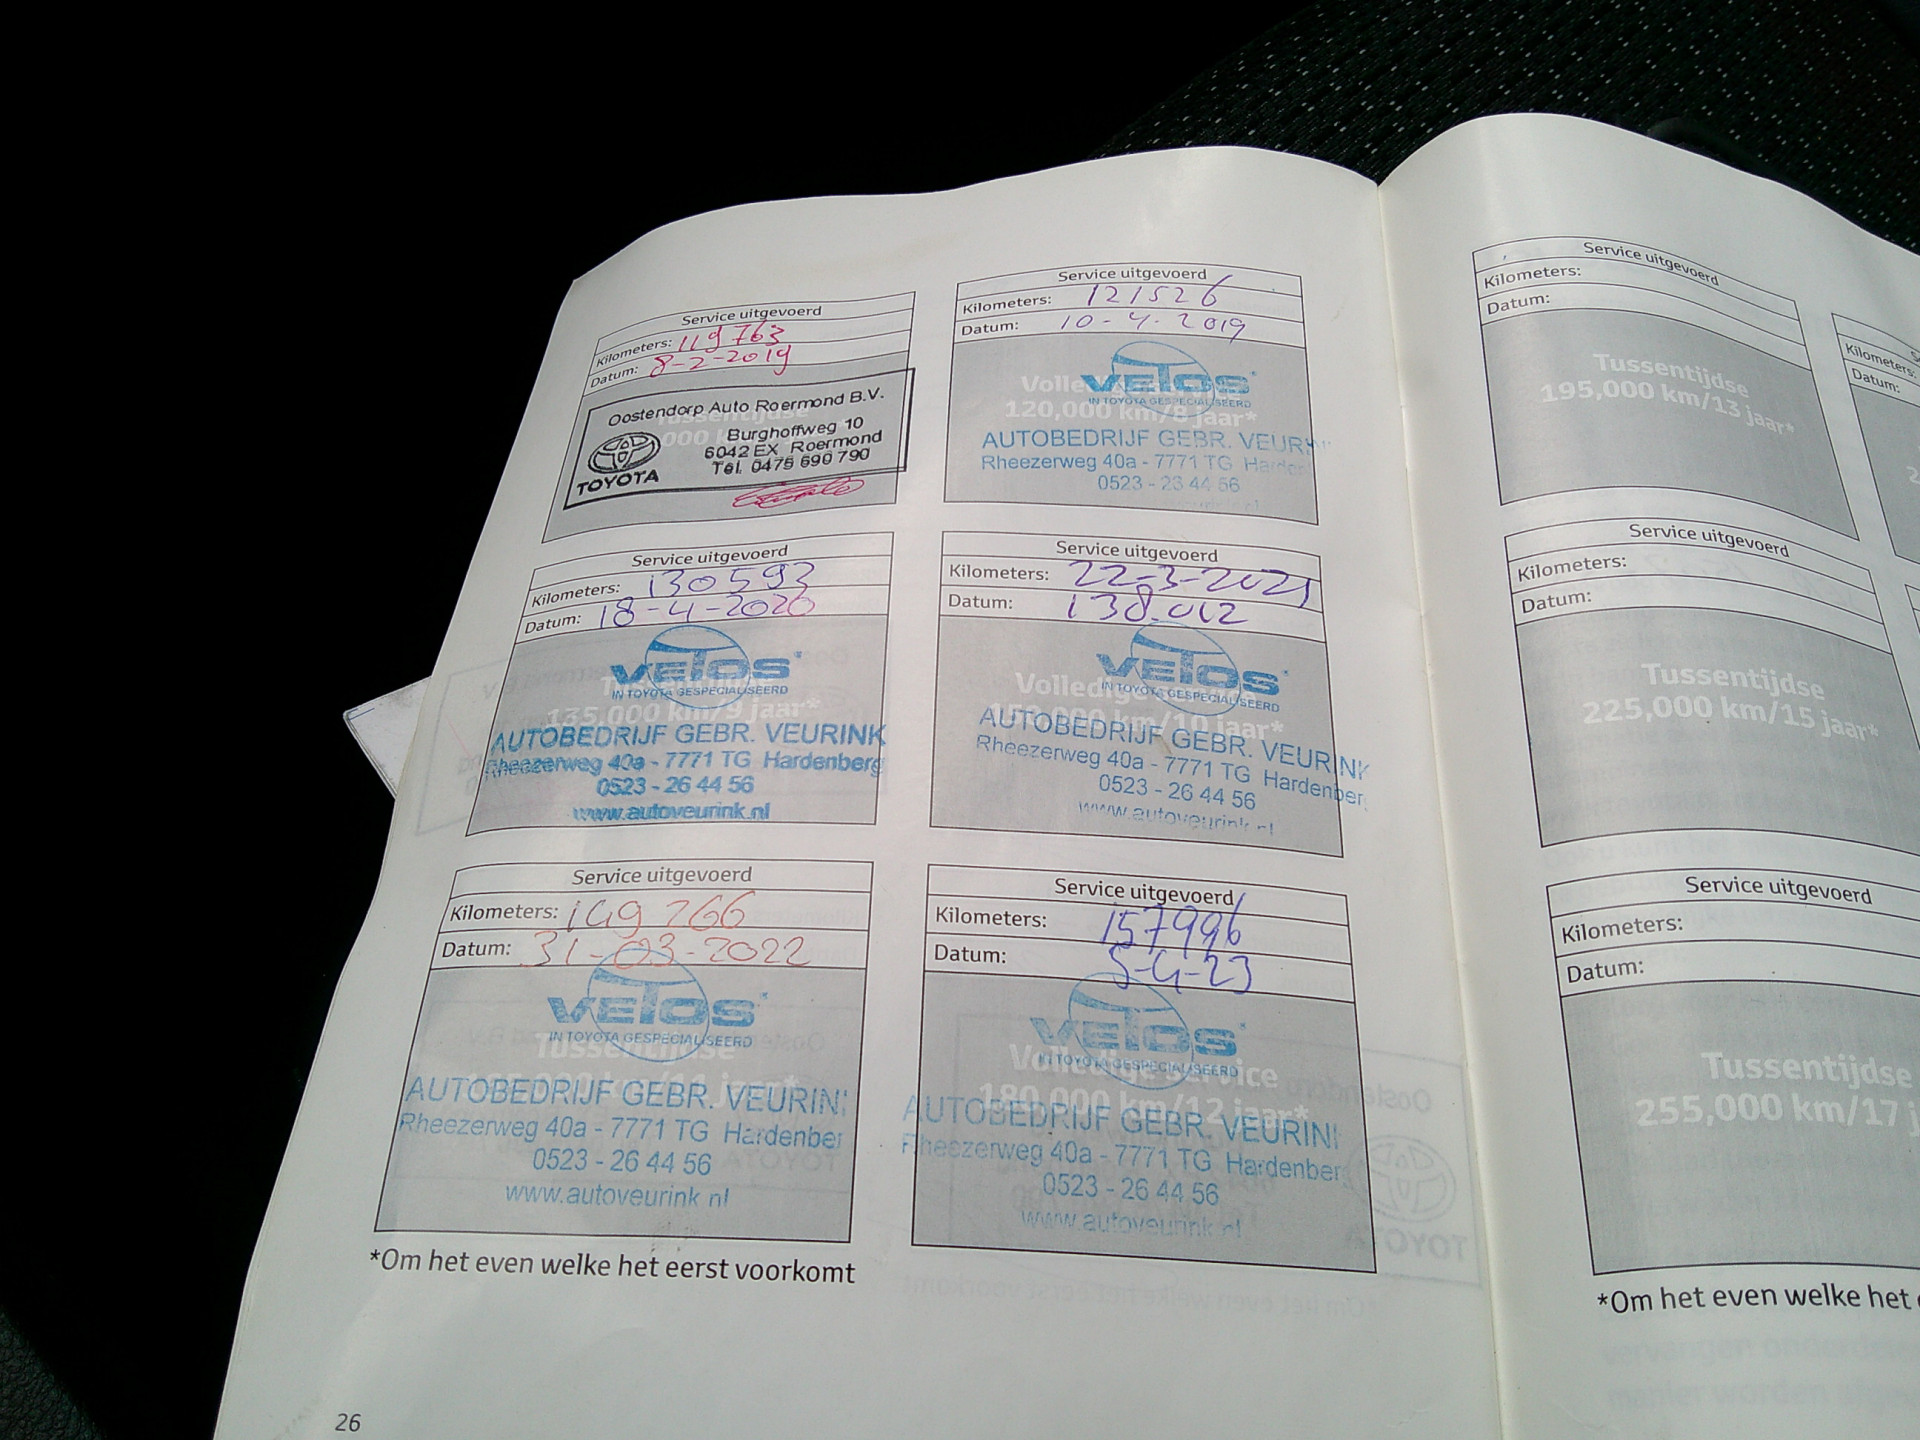 Service uitgevoerd
Kilometers: 119763
Datum: 8-2-2019
Oostendorp Auto Roermond B.V.
Burghoffweg 10
6042 EX Roermond
Tel. 0475 690 790
TOYOTA
Service uitgevoerd
Kilometers: 121526
Datum: 10-4-2019
VETOS
IN TOYOTA GESPECIALISEERD
120,000 km/8 jaar*
AUTOBEDRIJF GEBR. VEURIN
Rheezerweg 40a - 7771 TG Harden
0523 - 26 44 56
Service uitgevoerd
Kilometers: 130593
Datum: 18-4-2020
VETOS
IN TOYOTA GESPECIALISEERD
135,000 km/9 jaar*
AUTOBEDRIJF GEBR. VEURINK
Rheezerweg 40a - 7771 TG Hardenberg
0523 - 26 44 56
www.autoveurink.nl
Service uitgevoerd
Kilometers: 22-3-2021
Datum: 138.012
VETOS
IN TOYOTA GESPECIALISEERD
km/10 jaar*
AUTOBEDRIJF GEBR. VEURINK
Rheezerweg 40a - 7771 TG Hardenber
0523 - 26 44 56
www.autoveurink.nl
Service uitgevoerd
Kilometers: 149766
Datum: 31-03-2022
VETOS
IN TOYOTA GESPECIALISEERD
Tussentijdse
km/11 jaar*
AUTOBEDRIJF GEBR. VEURIN
Rheezerweg 40a - 7771 TG Hardenber
0523 - 26 44 56
www.autoveurink.nl
Service uitgevoerd
Kilometers: 157996
Datum: 5-4-23
VETOS
IN TOYOTA GESPECIALISEERD
Volledige service
180,000 km/12 jaar*
AUTOBEDRIJF GEBR. VEURIN
Rheezerweg 40a - 7771 TG Hardenber
0523 - 26 44 56
www.autoveurink.nl
*Om het even welke het eerst voorkomt
26
Service uitgevoerd
Kilometers:
Datum:
Tussentijdse
195,000 km/13 jaar*
Kilometers:
Datum:
Service uitgevoerd
Kilometers:
Datum:
Tussentijdse
225,000 km/15 jaar*
Service uitgevoerd
Kilometers:
Datum:
Tussentijdse
255,000 km/17 j
*Om het even welke het